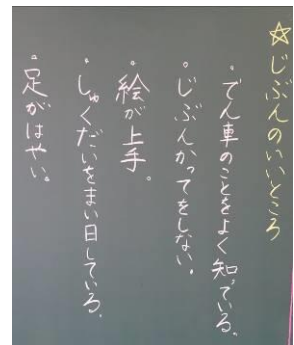 ☆じぶんのいいところ
・でん車のことをよく知っている。
・じぶんかってをしない。
・絵が上手。
・しゅくだいをまい日している。
・足がはやい。